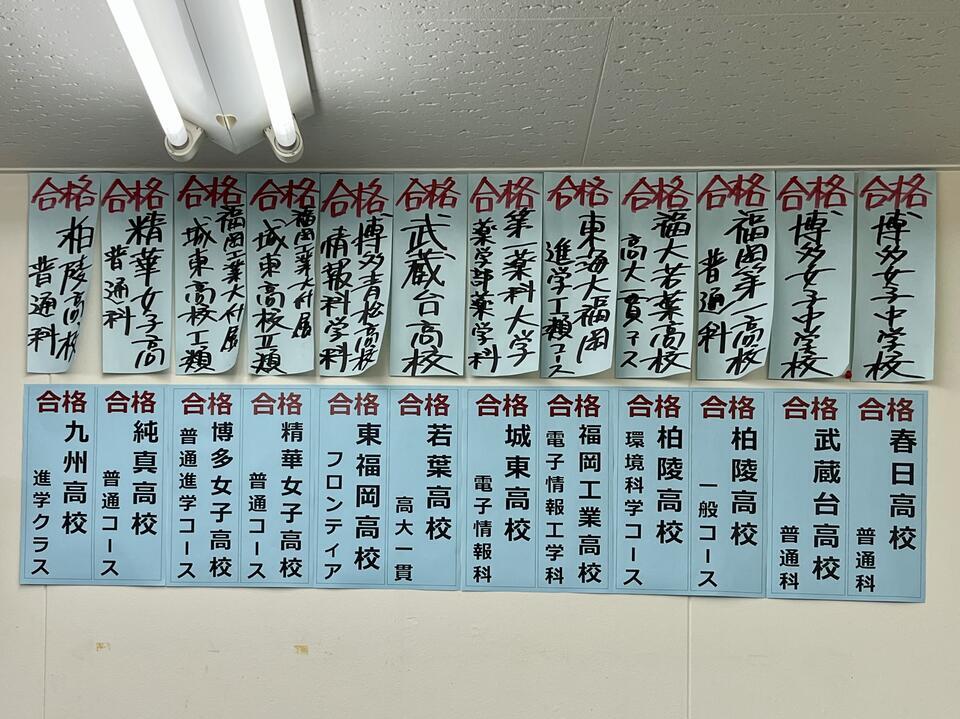 合格
博多女子中学校
合格
博多女子中学校
合格
福岡第一高校
普通科
合格
福大若葉高校
高大一貫コース
合格
東海大福岡
進学工類コース
合格
第一薬科大学
薬学部薬学科
合格
武蔵台高校
合格
博多青松高校
情報科学科
合格
福岡工業大付属
城東高校Ⅱ類
合格
福岡工業大付属
城東高校工類
合格
精華女子高
普通科
合格
柏陵高校
普通科
合格
春日高校
普通科
合格
武蔵台高校
普通科
合格
柏陵高校
一般コース
合格
柏陵高校
環境科学コース
合格
福岡工業高校
電子情報工学科
合格
城東高校
電子情報科
合格
若葉高校
高大一貫
合格
東福岡高校
フロンティア
合格
精華女子高校
普通コース
合格
博多女子高校
普通進学コース
合格
純真高校
普通コース
合格
九州高校
進学クラス